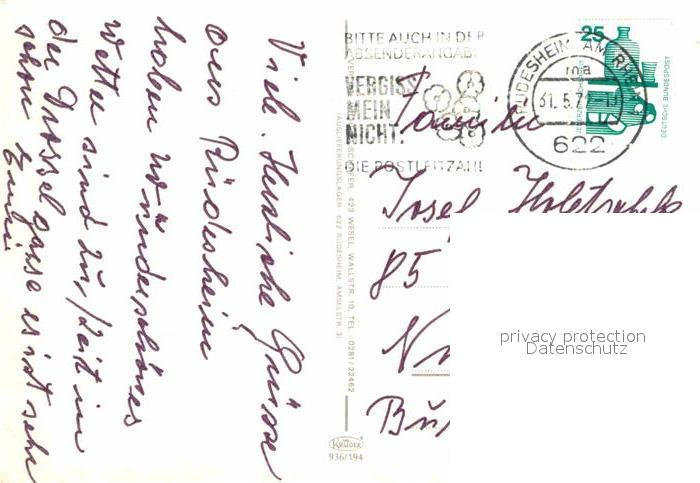 Viele Herzliche Grüsse
aus Rüdesheim
haben wünderschönes
Wetter sind zur Zeit in
der Drosselgasse es ist sehr
schön
BITTE AUCH IN DER
ABSENDERANGABE
VERGISS
MEIN
NICHT:
DIE POSTLEITZAHL
RÜDESHEIM AM RHEIN
ma
31.5.7
622
25
DEUTSCHE BUNDESPOST
Familie
Josef
85
SCHÄFER, 423 WESEL, WALLSTR. 10, TEL. 0281/22462
(AUSLIEFERUNGSLAGER: 622 RÜDESHEIM, AMSELSTR. 3)
Krüger
936/194
privacy protection
Datenschutz